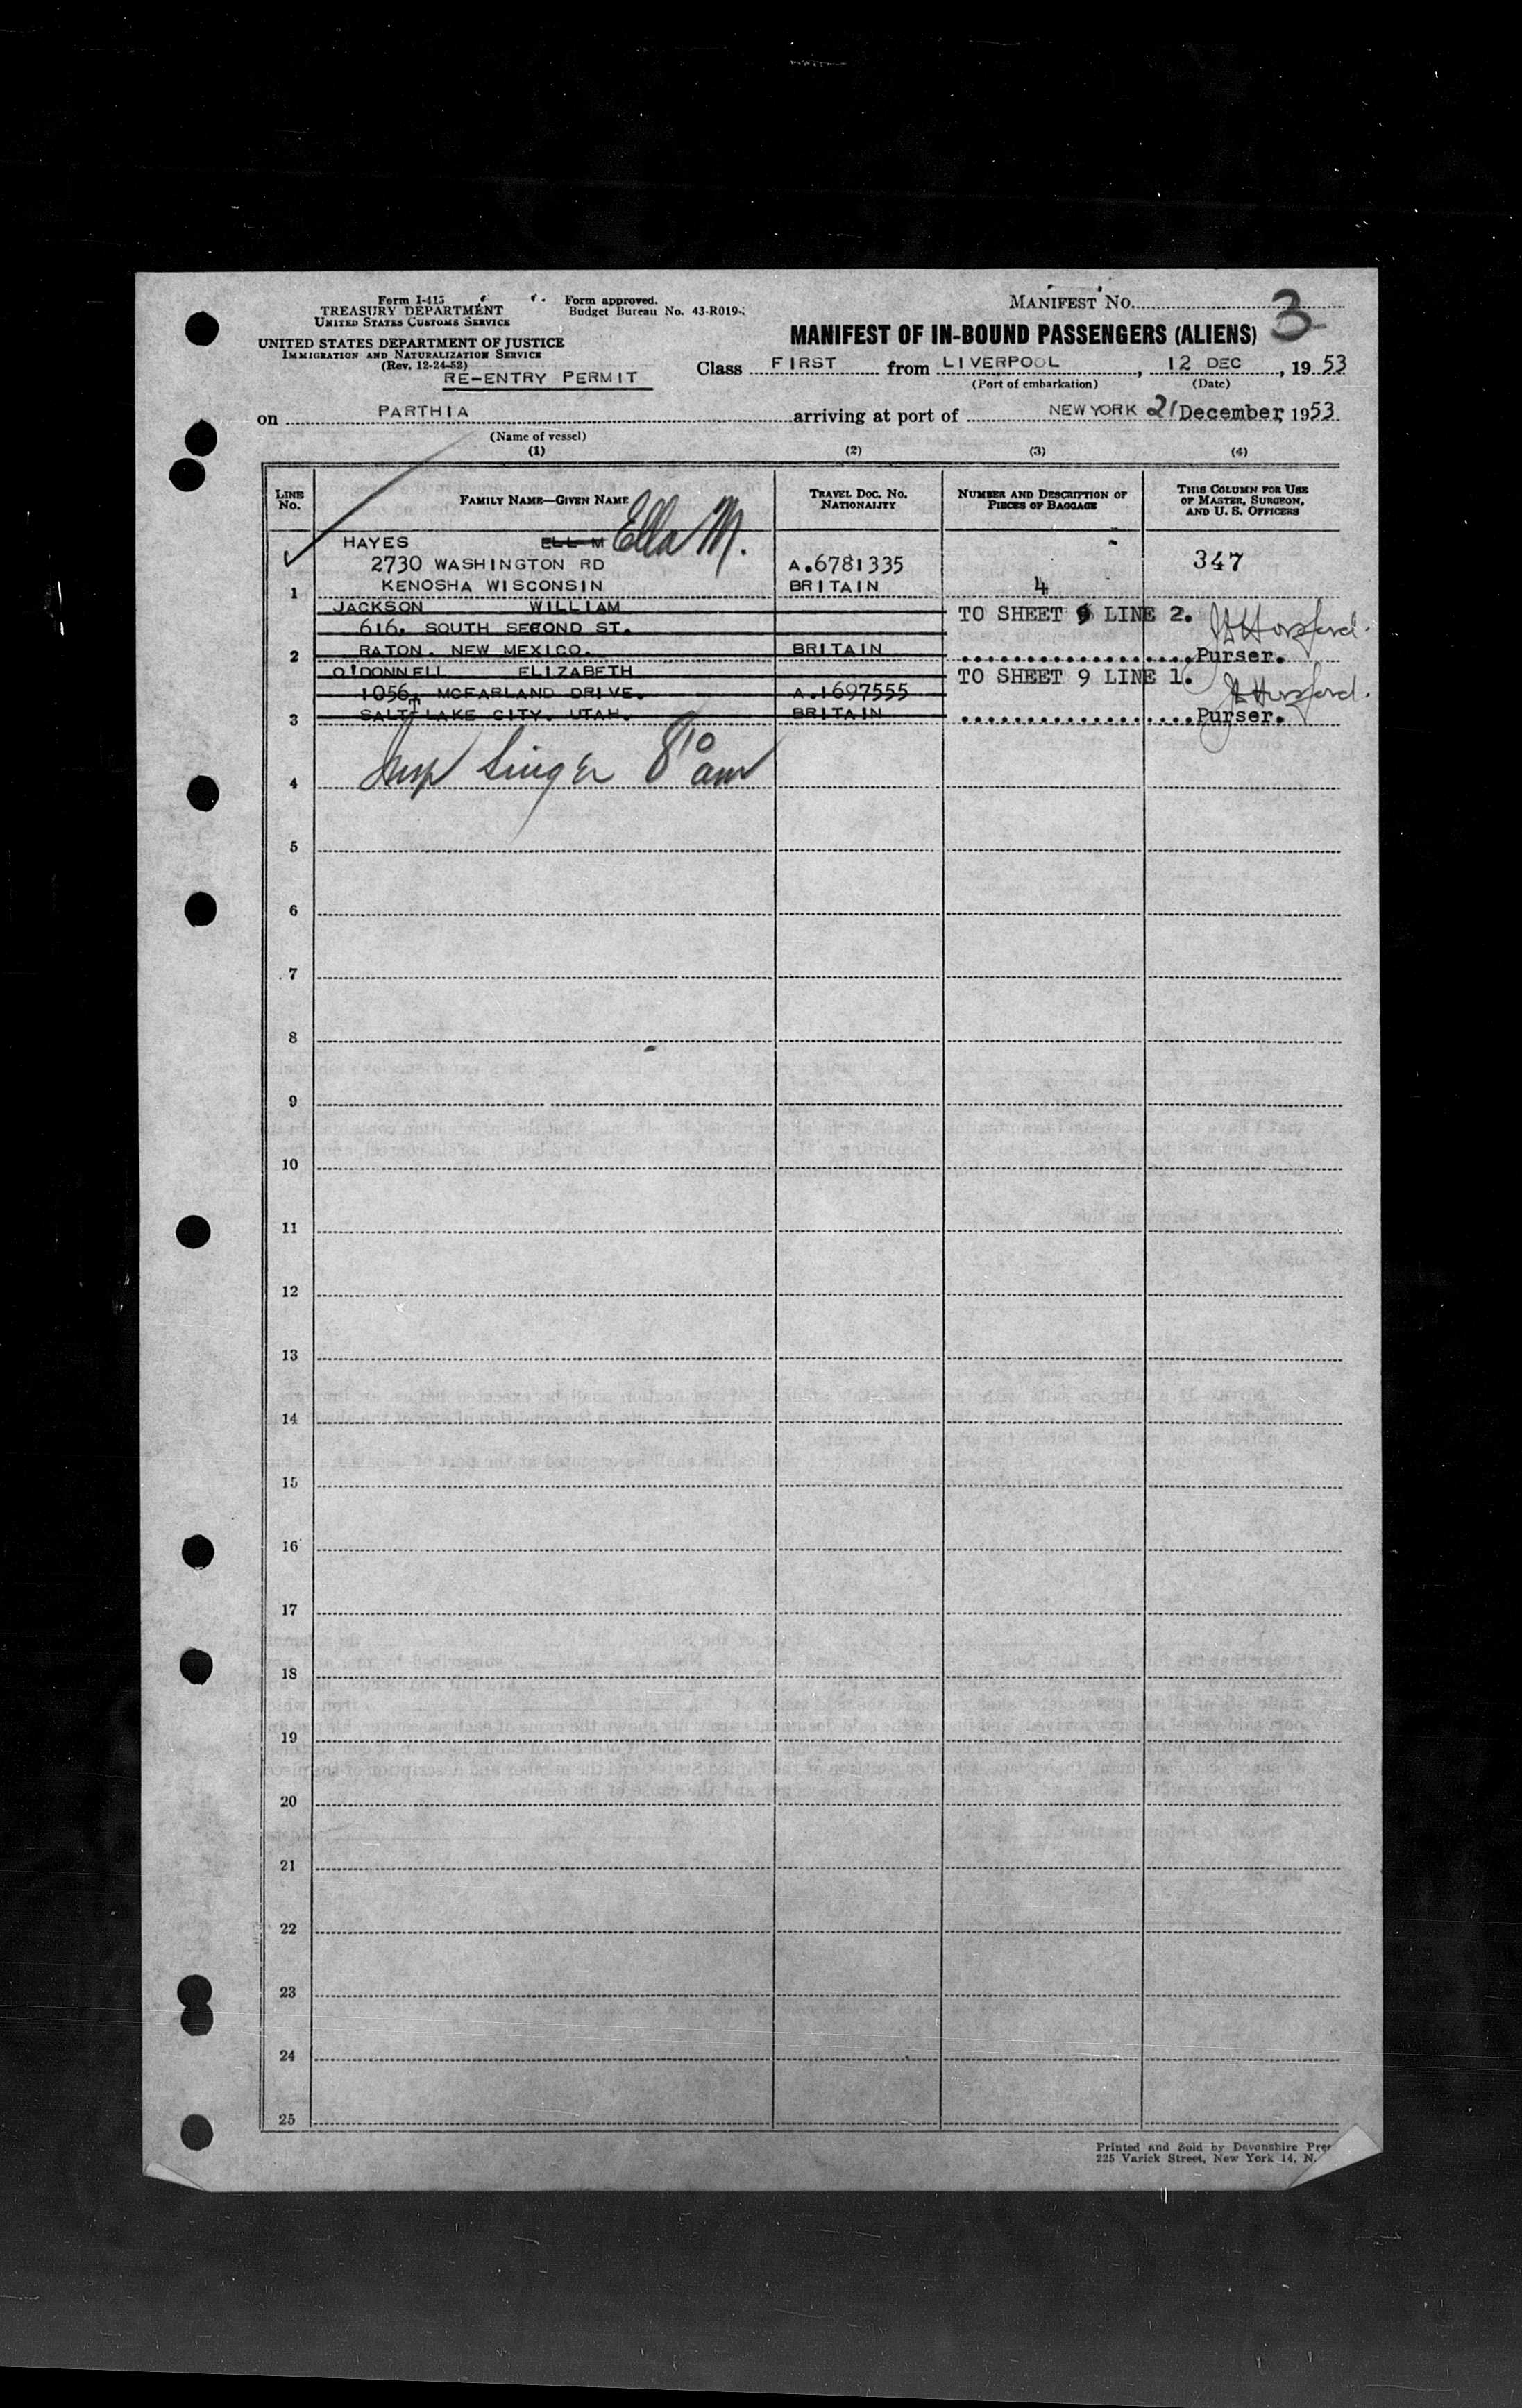 Form I-415
TREASURY DEPARTMENT
UNITED STATES CUSTOMS SERVICE
UNITED STATES DEPARTMENT OF JUSTICE
IMMIGRATION AND NATURALIZATION SERVICE
(Rev. 12-24-52)
RE-ENTRY PERMIT
Form approved.
Budget Bureau No. 43-R019-
MANIFEST NO. 3
MANIFEST OF IN-BOUND PASSENGERS (ALIENS)
Class FIRST from LIVERPOOL, 12 DEC, 19 53
(Port of embarkation) (Date)
on PARTHIA arriving at port of NEW YORK 21 December, 1953
(Name of vessel)
(1) (2) (3) (4)
LINE NO.
FAMILY NAME—GIVEN NAME
TRAVEL DOC. NO. NATIONALITY
NUMBER AND DESCRIPTION OF PIECES OF BAGGAGE
THIS COLUMN FOR USE OF MASTER, SURGEON, AND U. S. OFFICERS
HAYES ELL M Ella M.
2730 WASHINGTON RD A.6781335 347
1 KENOSHA WISCONSIN BRITAIN 4
JACKSON WILLIAM TO SHEET 9 LINE 2.
616. SOUTH SECOND ST.
2 RATON. NEW MEXICO. BRITAIN ..................Purser.
O'DONNELL ELIZABETH TO SHEET 9 LINE 1.
1056, MCFARLAND DRIVE. A.1697555
3 SALT LAKE CITY. UTAH. BRITAIN ..................Purser.
4 Insp Singer 8 10 am
5
6
7
8
9
10
11
12
13
14
15
16
17
18
19
20
21
22
23
24
25
Printed and Sold by Devonshire
225 Varick Street, New York 14, N.